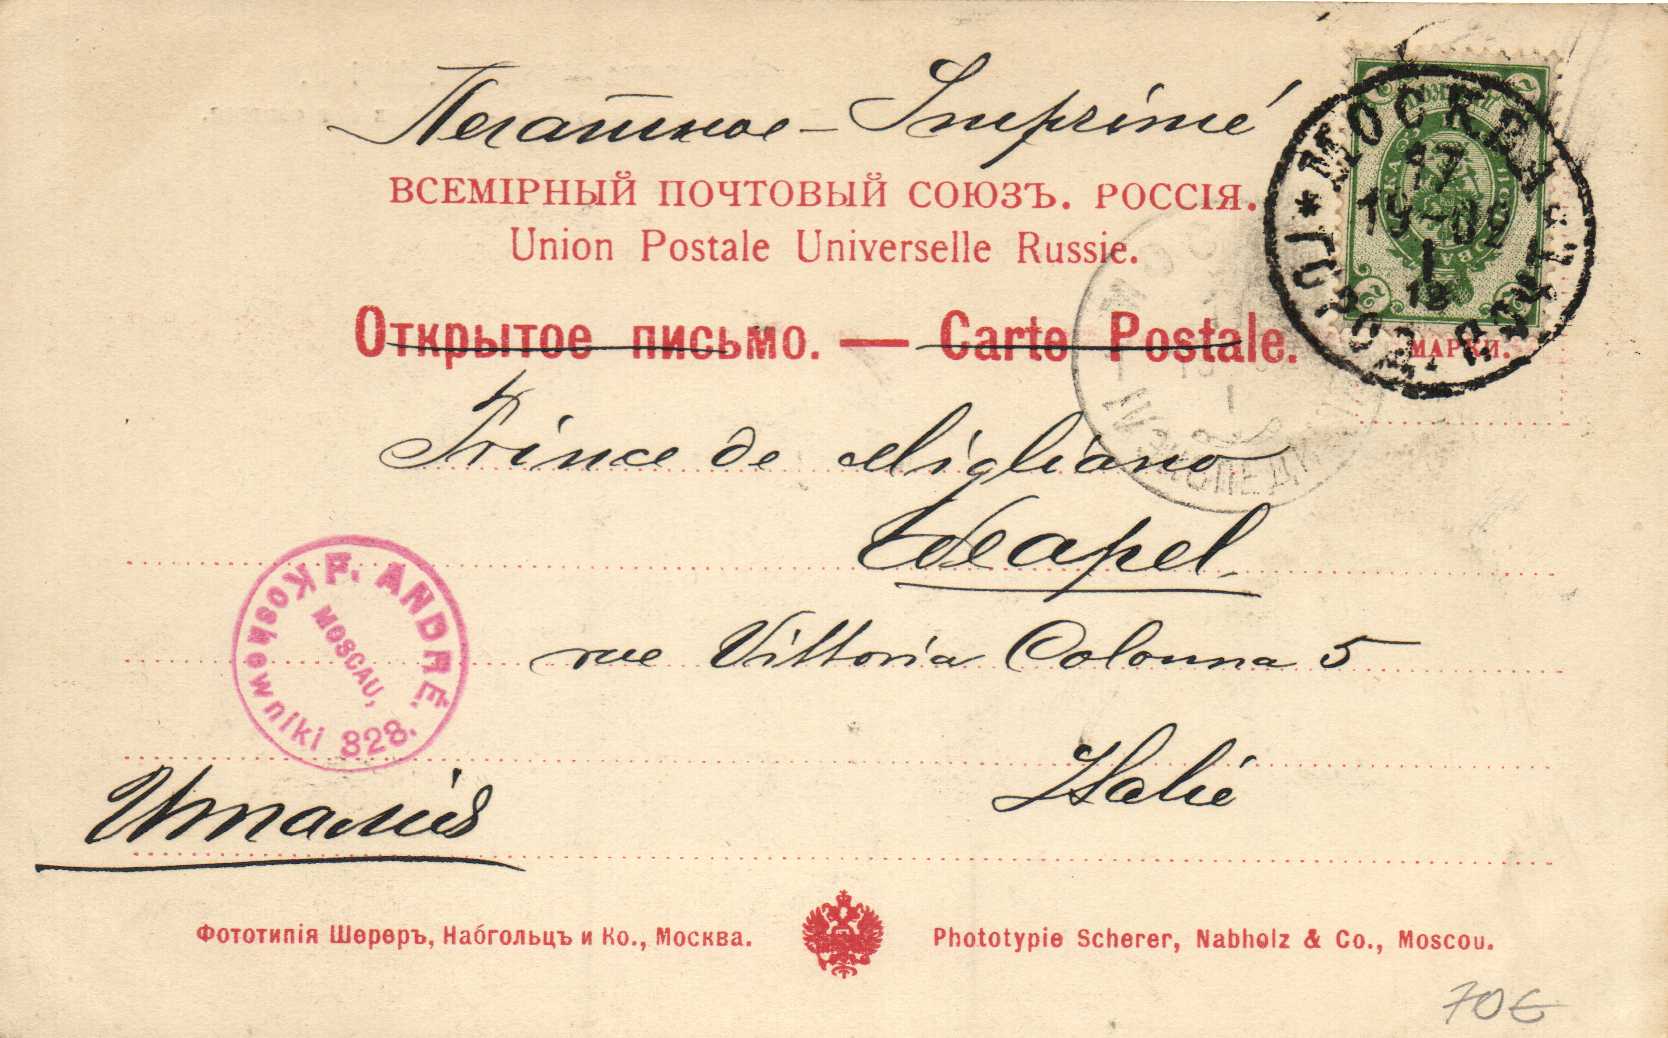 Печатное – Imprimé
ВСЕМІРНЫЙ ПОЧТОВЫЙ СОЮЗЪ. РОССІЯ.
Union Postale Universelle Russie.
Открытое письмо. — Carte Postale.
МОСКВА
17
1
МАРКИ.
Prince de Migliano
Neapel.
rue Vittoria Colonna 5
Italie
F. ANDRÉ.
MOSCAU,
Koshewniki 828.
Италія
Фототипія Шереръ, Набгольцъ и Ко., Москва.
Phototypie Scherer, Nabholz & Co., Moscou.
70€